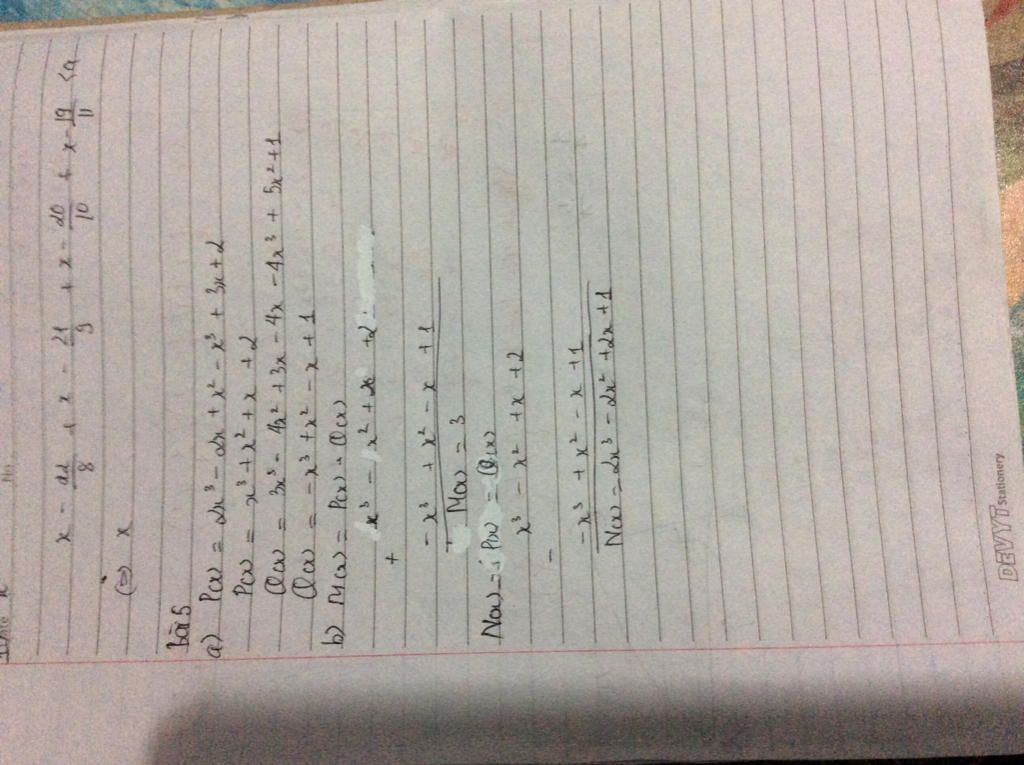 x - 22/8 + x - 21/9 + x - 20/10 + x - 19/11 <4
(=) x
Bài 5
a) P(x) = 2x³ - 2x + x² - x³ + 3x + 2
P(x) = x³ + x² + x + 2
Q(x) = 3x³ - 4x² + 3x - 4x - 4x³ + 5x² + 1
Q(x) = - x³ + x² - x + 1
b) M(x) = P(x) + Q(x)
x³ - x² + x + 2
+
- x³ + x² - x + 1
M(x) = 3
N(x) = P(x) - Q(x)
x³ - x² + x + 2
-
- x³ + x² - x + 1
N(x) = 2x³ - 2x² + 2x + 1
DEVYT Stationery